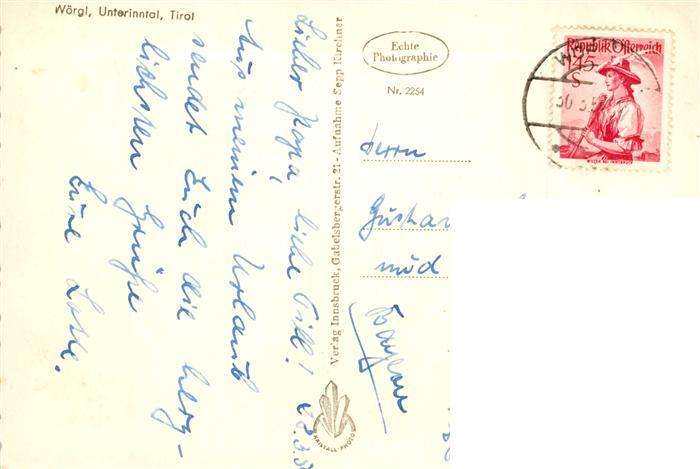 Wörgl, Unterinntal, Tirol
Lieber Papa, liebe Till!
Aus meinem Urlaub
sendet Euch die herz-
lichsten Grüße
Eure Lotte.
Verlag Innsbruck, Gabelsbergerstr. 21 - Aufnahme Sepp Kirchner
KRISTALL-PHOTO
Echte
Photographie
Nr. 2254
Republik Österreich
1.45
S
Herrn
Gustav
und
Bayern